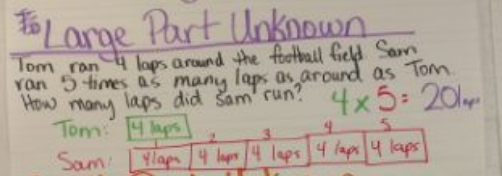 Large Part Unknown
Tom ran 4 laps around the football field Sam
ran 5 times as many laps as around as Tom.
How many laps did Sam run? 4 x 5 = 20 laps
Tom: 4 laps
1 2 3 4 5
Sam: 4 laps 4 laps 4 laps 4 laps 4 laps